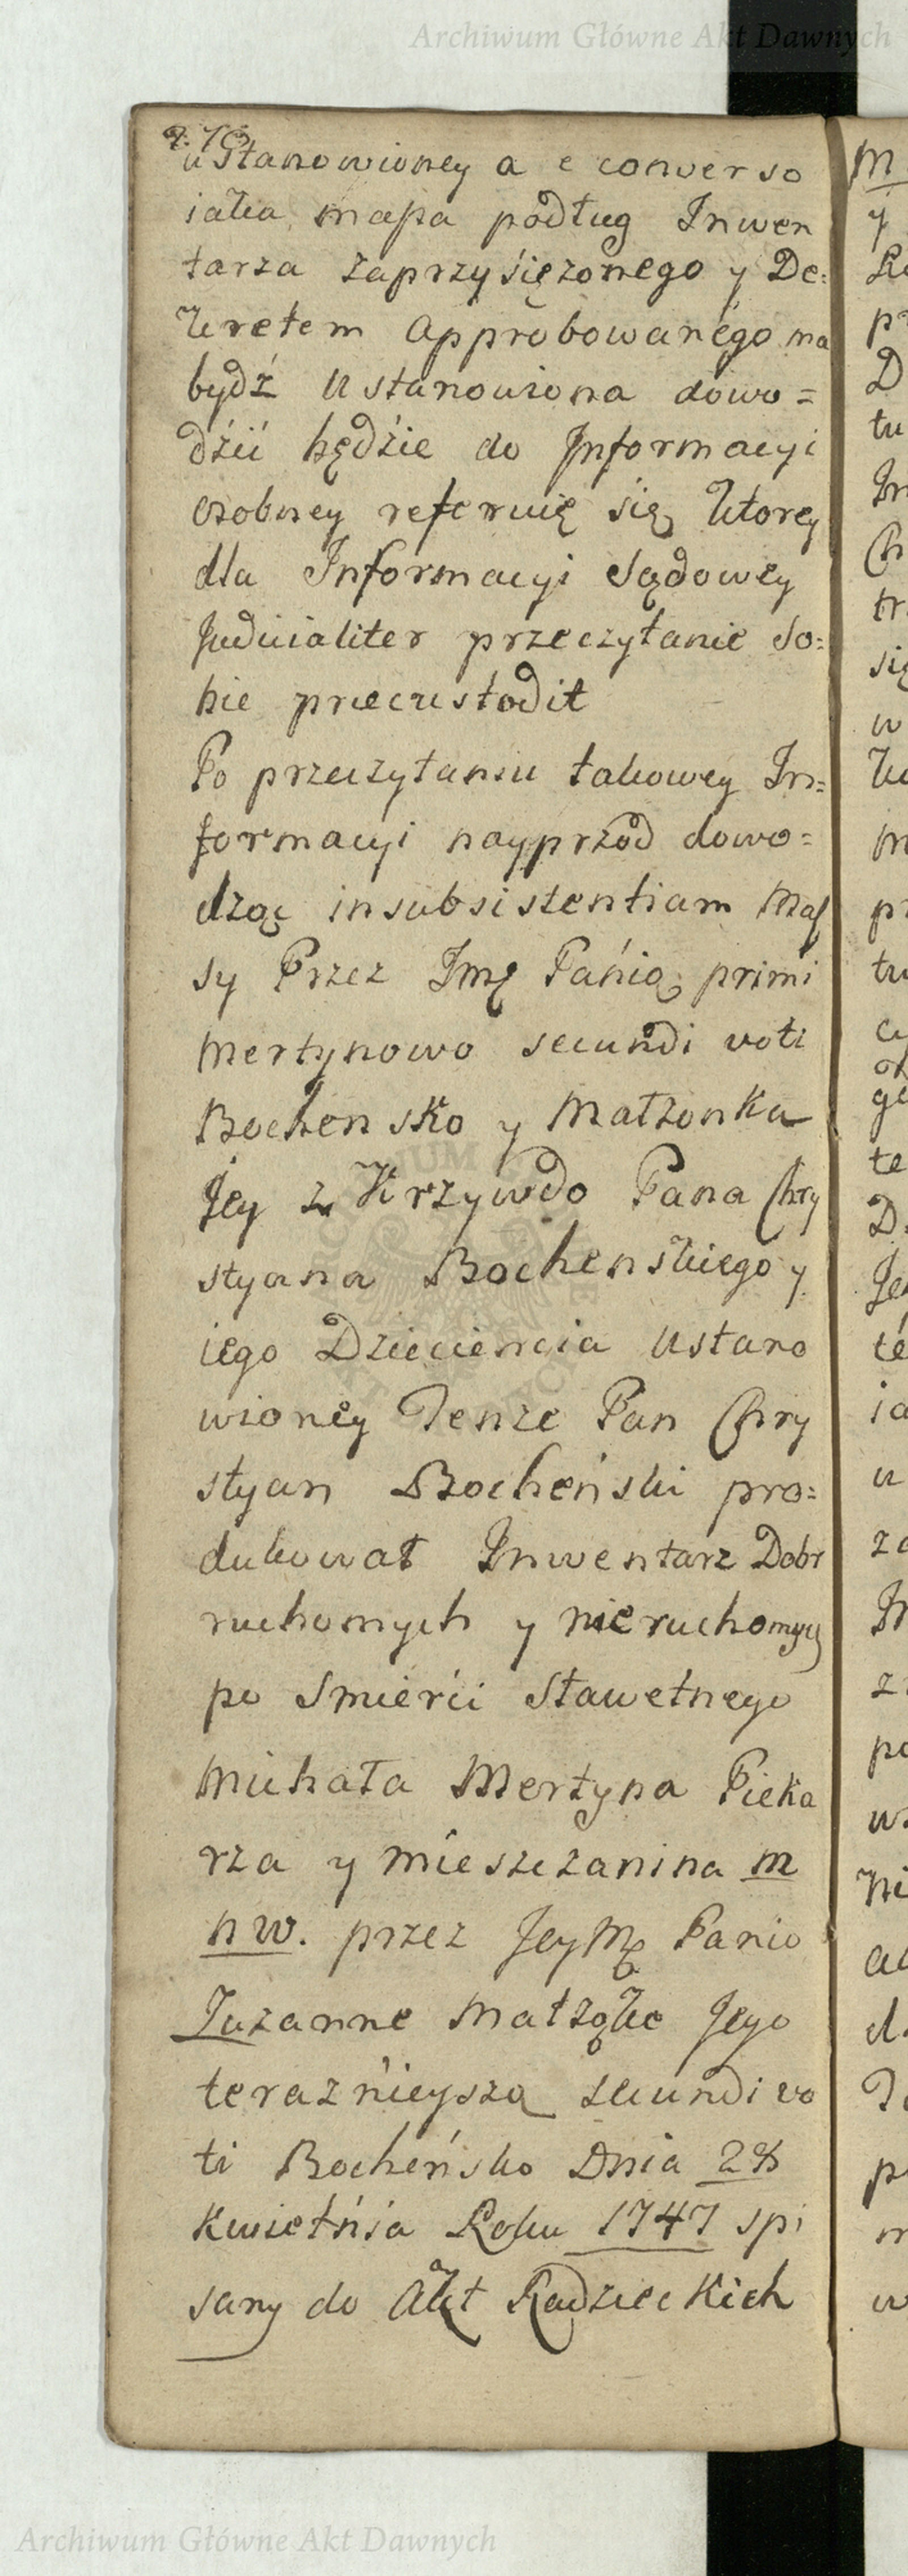 Archiwum Główne Akt Dawnych
ustanowioney a e converso
iaka massa podług Inwen
tarza zaprzysiężonego y De=
kretem Approbowanego ma
bydź Ustanowiona dowo=
dźić będźie do Informacyi
osobney referuię się ktorey
dla Informacyi Sądowey
Judicialiter przeczytanie So=
bie praecustodit
Po przeczytaniu takowey In=
formacyi nayprzod dowo=
dząc insubsistentiam Mas
sy Przez Imę Panią primi
Mertynowo secundi voti
Bochensko y Małzonka
Jey z Krzywdo Pana Chry
styana Bochenskiego y
iego Dzieciencia Ustano
wioney Tenze Pan Chry
styan Bocheński pro=
dukował Inwentarz Dobr
ruchomych y nieruchomych
po Smierci Sławetnego
Michała Mertyna Pieka
rza y mieszczanina m
n w. przez JeyMę Panio
Zuzanne Małząko Jego
teraznieyszą secundi vo
ti Bocheńsko Dnia
Kwietnia Roku 1747 spi
sany do Akt Radzieckich
Archiwum Główne Akt Dawnych